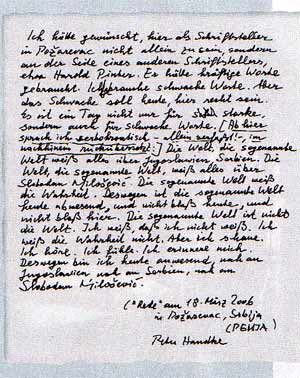 Ich hätte gewünscht, hier als Schriftsteller
in Požarevac nicht allein zu sein, sondern
an der Seite eines anderen Schriftstellers,
etwa Harold Pinter. Er hätte kräftige Worte
gebraucht. Ich brauche schwache Worte. Aber
das Schwache soll heute, hier recht sein.
Es ist ein Tag nicht nur für starke,
sondern auch für schwache Worte. [Ab hier
sprach ich serbokroatisch – allein verfaßt im
nachhinein rückübersetzt.] Die Welt, die sogenannte
Welt weiß alles über Jugoslawien, Serbien. Die
Welt, die sogenannte Welt, weiß alles über
Slobodan Milošević. Die sogenannte Welt weiß
die Wahrheit. Deswegen ist die sogenannte Welt
heute abwesend, und nicht bloß heute, und
nicht bloß hier. Die sogenannte Welt ist nicht
die Welt. Ich weiß, daß ich nicht weiß. Ich
weiß die Wahrheit nicht. Aber ich schaue.
Ich höre. Ich fühle. Ich erinnere mich.
Deswegen bin ich heute anwesend, nah an
Jugoslawien, nah an Serbien, nah an
Slobodan Milošević.
("Rede" am 18. März 2006
in Požarevac, Srbija
Peter Handke